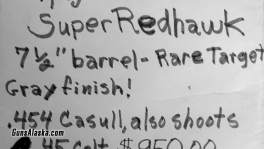 SuperRedhawk
7½" barrel - Rare Target
Gray finish!
.454 Casull, also shoots
.45 Colt $950.00
GunsAlaska.com